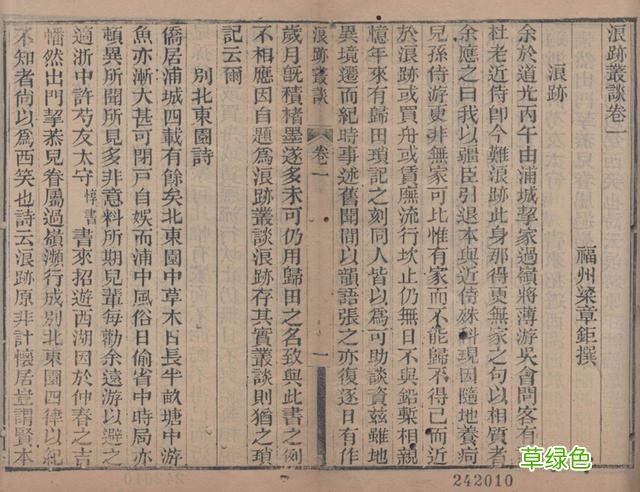 浪跡叢談卷一
福州梁章鉅撰
浪跡
余於道光丙午由浦城挈家過嶺將薄游吳會問客有
杜老近侍卽今難浪跡此身那得更無家之句以相質者
余應之曰我以疆臣引退本與近侍殊科現因隨地養疴
兒孫侍游更非無家可比惟有家而不能歸不得已而近
於浪跡或買舟或賃廡流行坎止仍無日不與鉛槧相親
憶年來有歸田瑣記之刻同人皆以爲可助談資茲雖地
異境遷而紀時事述舊聞間以韻語張之亦復逐日有作
浪跡叢談
卷一
一
歲月旣積楮墨遂多未可仍用歸田之名致與此書之例
不相應因自題爲浪跡叢談浪跡存其實叢談則猶之瑣
記云爾
別北東園詩
僑居浦城四載有餘矣北東園中草木日長半畝塘中游
魚亦漸大甚可閉戶自娛而浦中風俗日偷省中時局亦
頓異所聞所見多非意料所期兒輩每勸余遠游以避之
適浙中許芍友太守惇書書來招遊西湖因於仲春之吉
幡然出門挈恭兒眷屬過嶺瀕行成別北東園四律以紀
不知者尙以爲西笑也詩云浪跡原非計懷居豈謂賢本
242010
草绿色